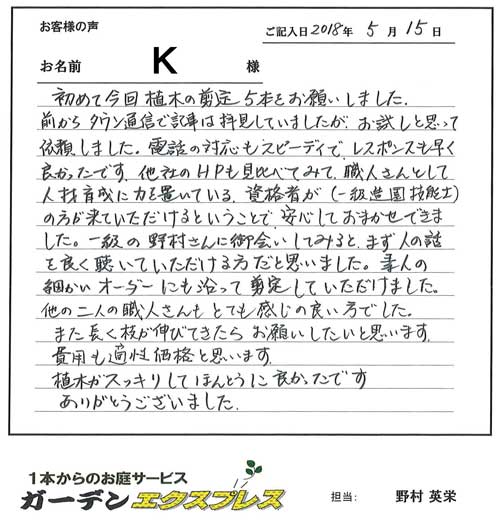 お客様の声
ご記入日2018年 5月15日
お名前 K 様
初めて今回植木の剪定5本をお願いしました.
前からタウン通信で記事は拝見していましたが、お試しと思って
依頼しました。電話の対応もスピーディで、レスポンスも早く
良かったです。他社のHPも見比べてみて、職人さんとして
人材育成に力を置いている、資格者が(一級造園技能士)
の方が来ていただけるということで、安心しておまかせできま
した。一級の野村さんに御会いしてみると、まず人の話
を良く聴いていただける方だと思いました。素人の
細かいオーダーにも沿って剪定していただけました。
他の二人の職人さんもとても感じの良い方でした。
また長く枝が伸びてきたらお願いしたいと思います.
費用も適性価格と思います.
植木がスッキリしてほんとうに良かったです
ありがとうございました.
1本からのお庭サービス
ガーデンエクスプレス
担当: 野村 英栄